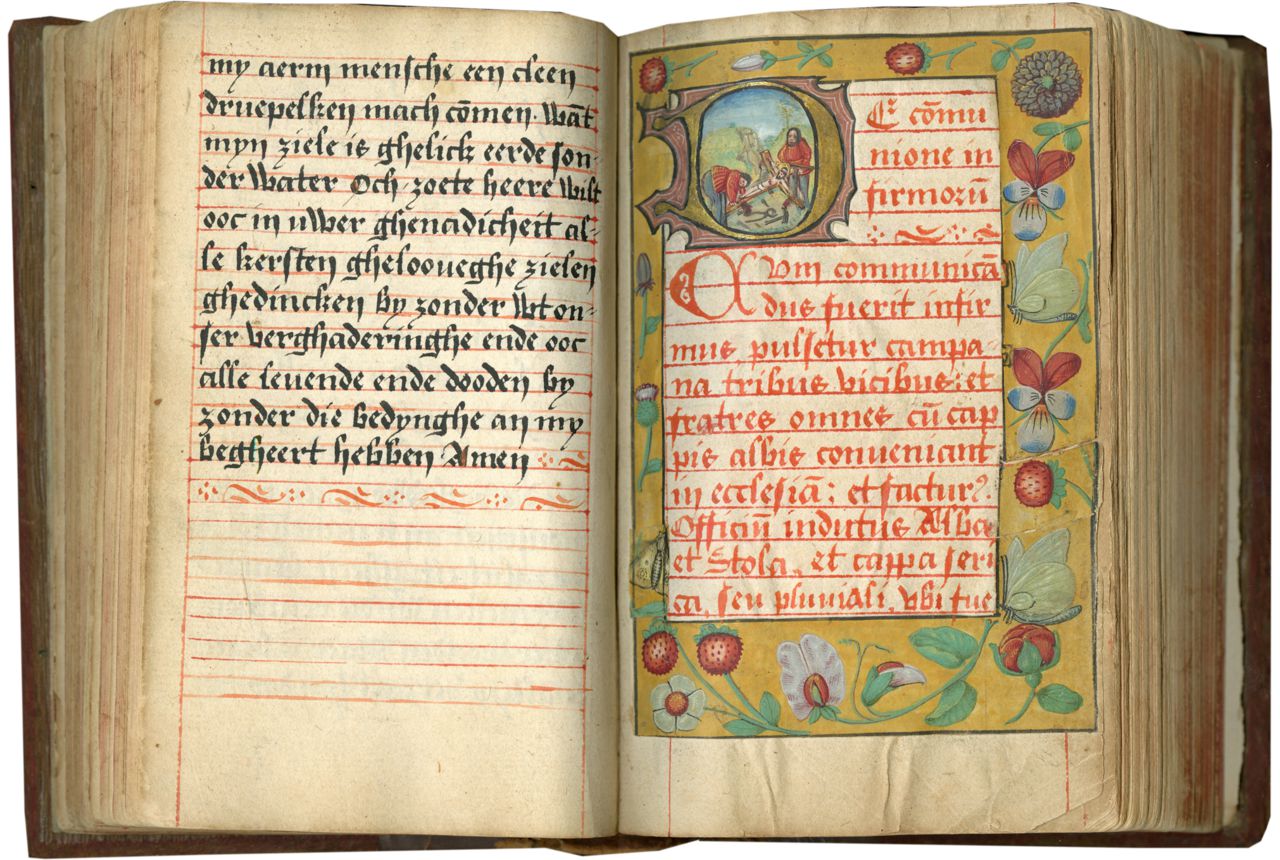 my aerm mensche een cleen
druepelken mach cōmen. Wāt
myn ziele is ghelick eerde son-
der water Och zoete heere wilt
ooc in uwer ghenadicheit al-
le kersten ghelooueghe zielen
ghedincken by zonder wt on-
ser verghaderinghe ende ooc
alle leuende ende dooden by
zonder die bedynghe an my
begheert hebben Amen
DE cōmu
nione in
firmorū
CVm communicā
dus fuerit infir
mus, pulsetur campa-
na tribus vicibus: et
fratres omnes cū cap
pis albis conveniant
in ecclesiā: et facturꝰ.
Officiū indutus Alba
et Stola, et cappa seri
ca, seu pluviali, vbi fue